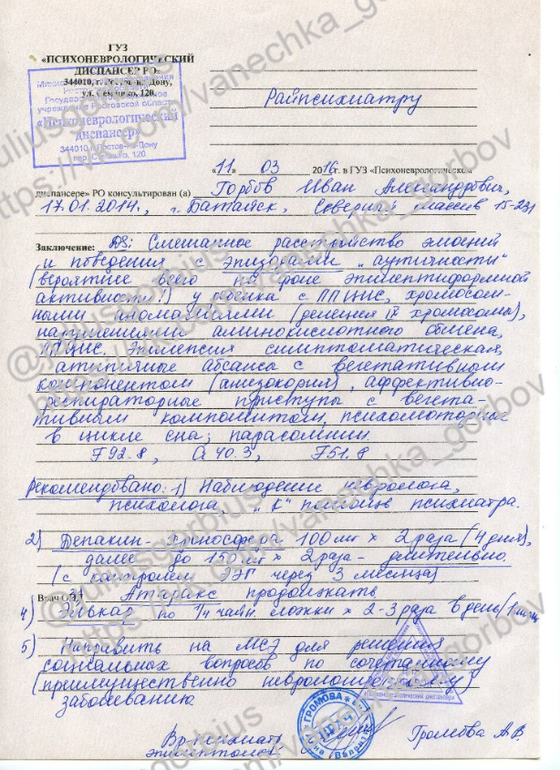 ГУЗ
«ПСИХОНЕВРОЛОГИЧЕСКИЙ
ДИСПАНСЕР РО»
344010, г. Ростов-на-Дону,
ул. Семашко, 120.
«Психоневрологический
диспансер»
344010 г. Ростов-на-Дону
пер. Семашко, 120
Райпсихиатру
«11» 03 2016 г. в ГУЗ «Психоневрологическом
диспансере» РО консультирован (а) Горбов Иван Александрович,
17.01.2014., г. Батайск, Северный массив 15-231
Заключение: DS: Смешанное расстройство эмоций
и поведения с эпизодами „аутичности"
(вероятнее всего на фоне эпилептиформной
активности!) у ребёнка с ППЦНС, хромосом-
ными аномалиями (делеция хромосомы),
нарушениями аминокислотного обмена,
ППЦНС. Эпилепсия симптоматическая,
атипичные абсансы с вегетативным
компонентом (анизокория), аффективно-
респираторные приступы с вегета-
тивным компонентом, психомоторные
в цикле сна; парасомнии.
F 92.8, G 40.3, F 51.8
Рекомендовано: 1) Наблюдение невролога,
психолога, „К" помощь психиатра.
2) Депакин-хроносфера 100 мг х 2 раза (4 дня),
далее до 150 мг х 2 раза - длительно.
(с контролем ЭЭГ через 3 месяца)
Врач ОЭД 3) Атаракс продолжать
4) Элькар по 1/4 чайн. ложки х 2-3 раза в день/
5) Направить на МСЭ для решения
социальных вопросов по сочетанному
(преимущественно неврологическому)
заболеванию.
Вр. психиатр
эпилептолог
ГРОМОВА
Громова А.В.
@juliusgorbius
https://vk.com/vanechka_gorbov